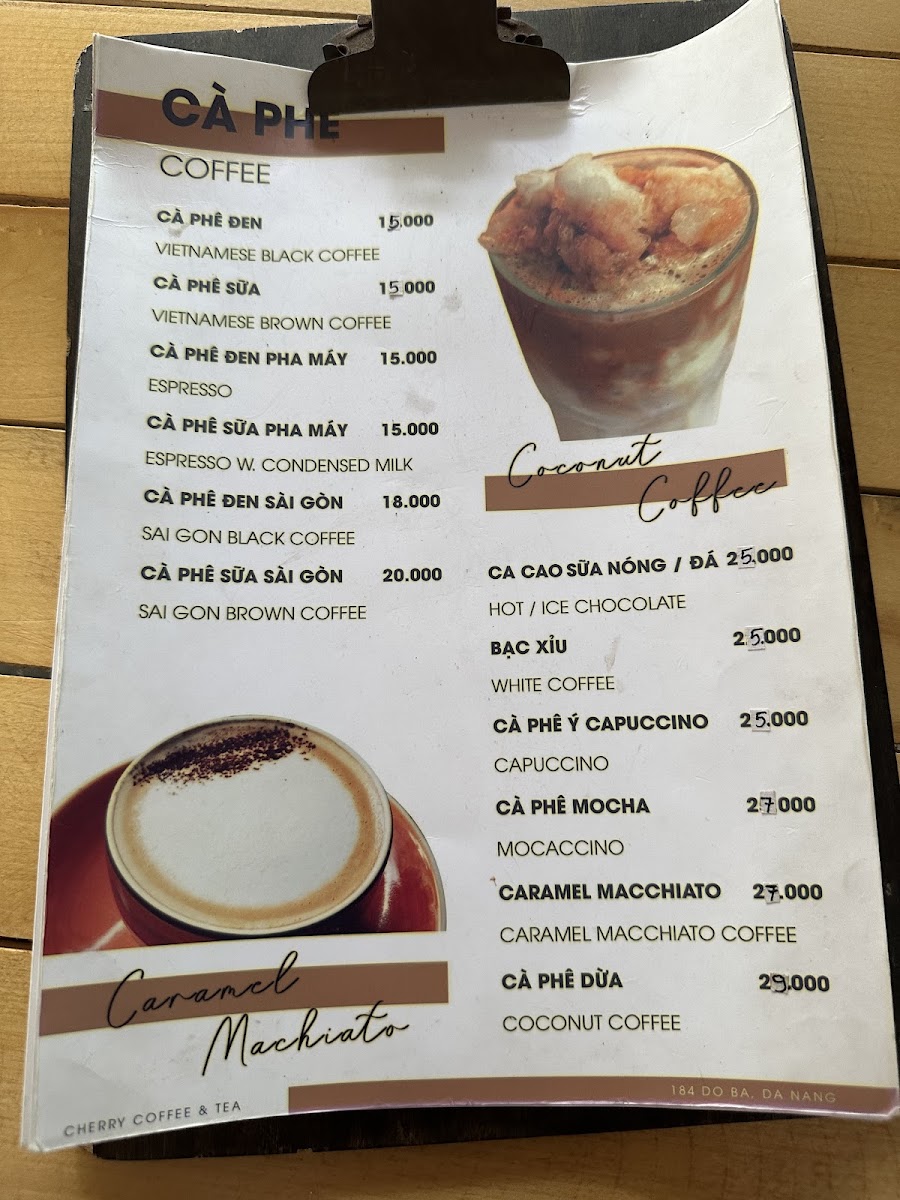 CÀ PHÊ
COFFEE
CÀ PHÊ ĐEN 15.000
VIETNAMESE BLACK COFFEE
CÀ PHÊ SỮA 15.000
VIETNAMESE BROWN COFFEE
CÀ PHÊ ĐEN PHA MÁY 15.000
ESPRESSO
CÀ PHÊ SỮA PHA MÁY 15.000
ESPRESSO W. CONDENSED MILK
CÀ PHÊ ĐEN SÀI GÒN 18.000
SAI GON BLACK COFFEE
CÀ PHÊ SỮA SÀI GÒN 20.000
SAI GON BROWN COFFEE
Caramel
Machiato
Coconut
Coffee
CA CAO SỮA NÓNG / ĐÁ 25.000
HOT / ICE CHOCOLATE
BẠC XỈU 25.000
WHITE COFFEE
CÀ PHÊ Ý CAPUCCINO 25.000
CAPUCCINO
CÀ PHÊ MOCHA 27.000
MOCACCINO
CARAMEL MACCHIATO 27.000
CARAMEL MACCHIATO COFFEE
CÀ PHÊ DỪA 29.000
COCONUT COFFEE
CHERRY COFFEE & TEA
184 DO BA, DA NANG